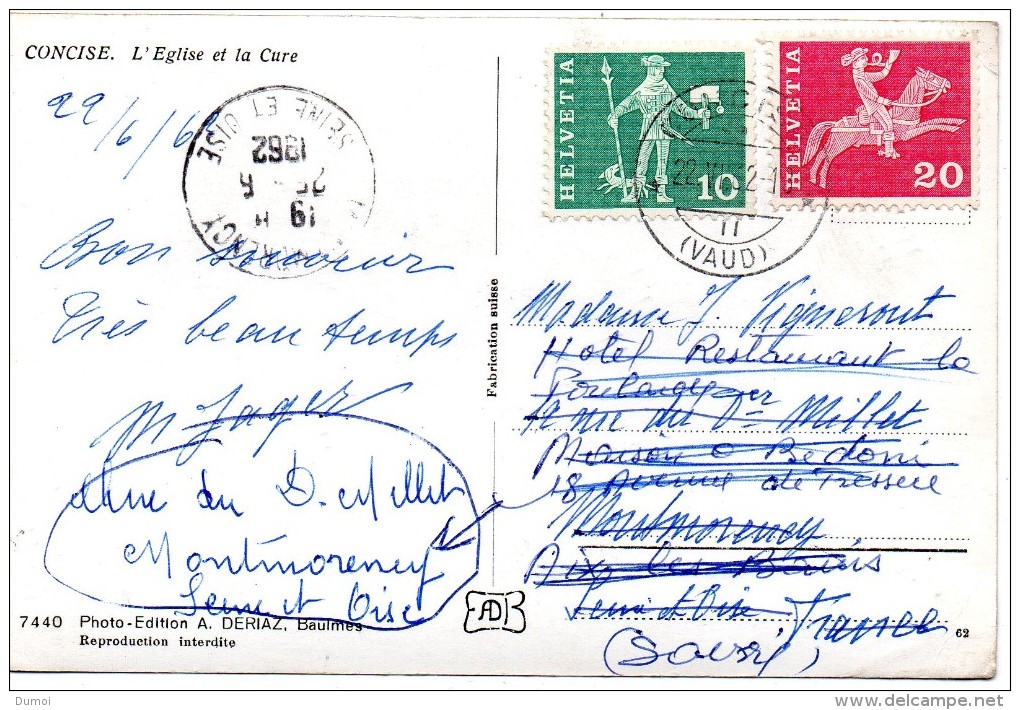 CONCISE. L'Eglise et la Cure
22/6/62
SEINE ET OISE
1962
19
HELVETIA
10
HELVETIA
20
22
(VAUD)
Bon souvenir
Très beau temps
M Jager
Rue du D. Millet
Montmorency
Seine et Oise
Fabrication suisse
Madame J. Vignesout
Hotel Restaurant la
Boulangger
rue du Dr Millet
Maison Bedoni
18 Avenue de Tresserve
Montmorency
Aix les Bains
Seine et Oise France
(Savoie)
AD
7440 Photo-Edition A. DERIAZ, Baulmes
Reproduction interdite
62
Dumoi
delcampe.net